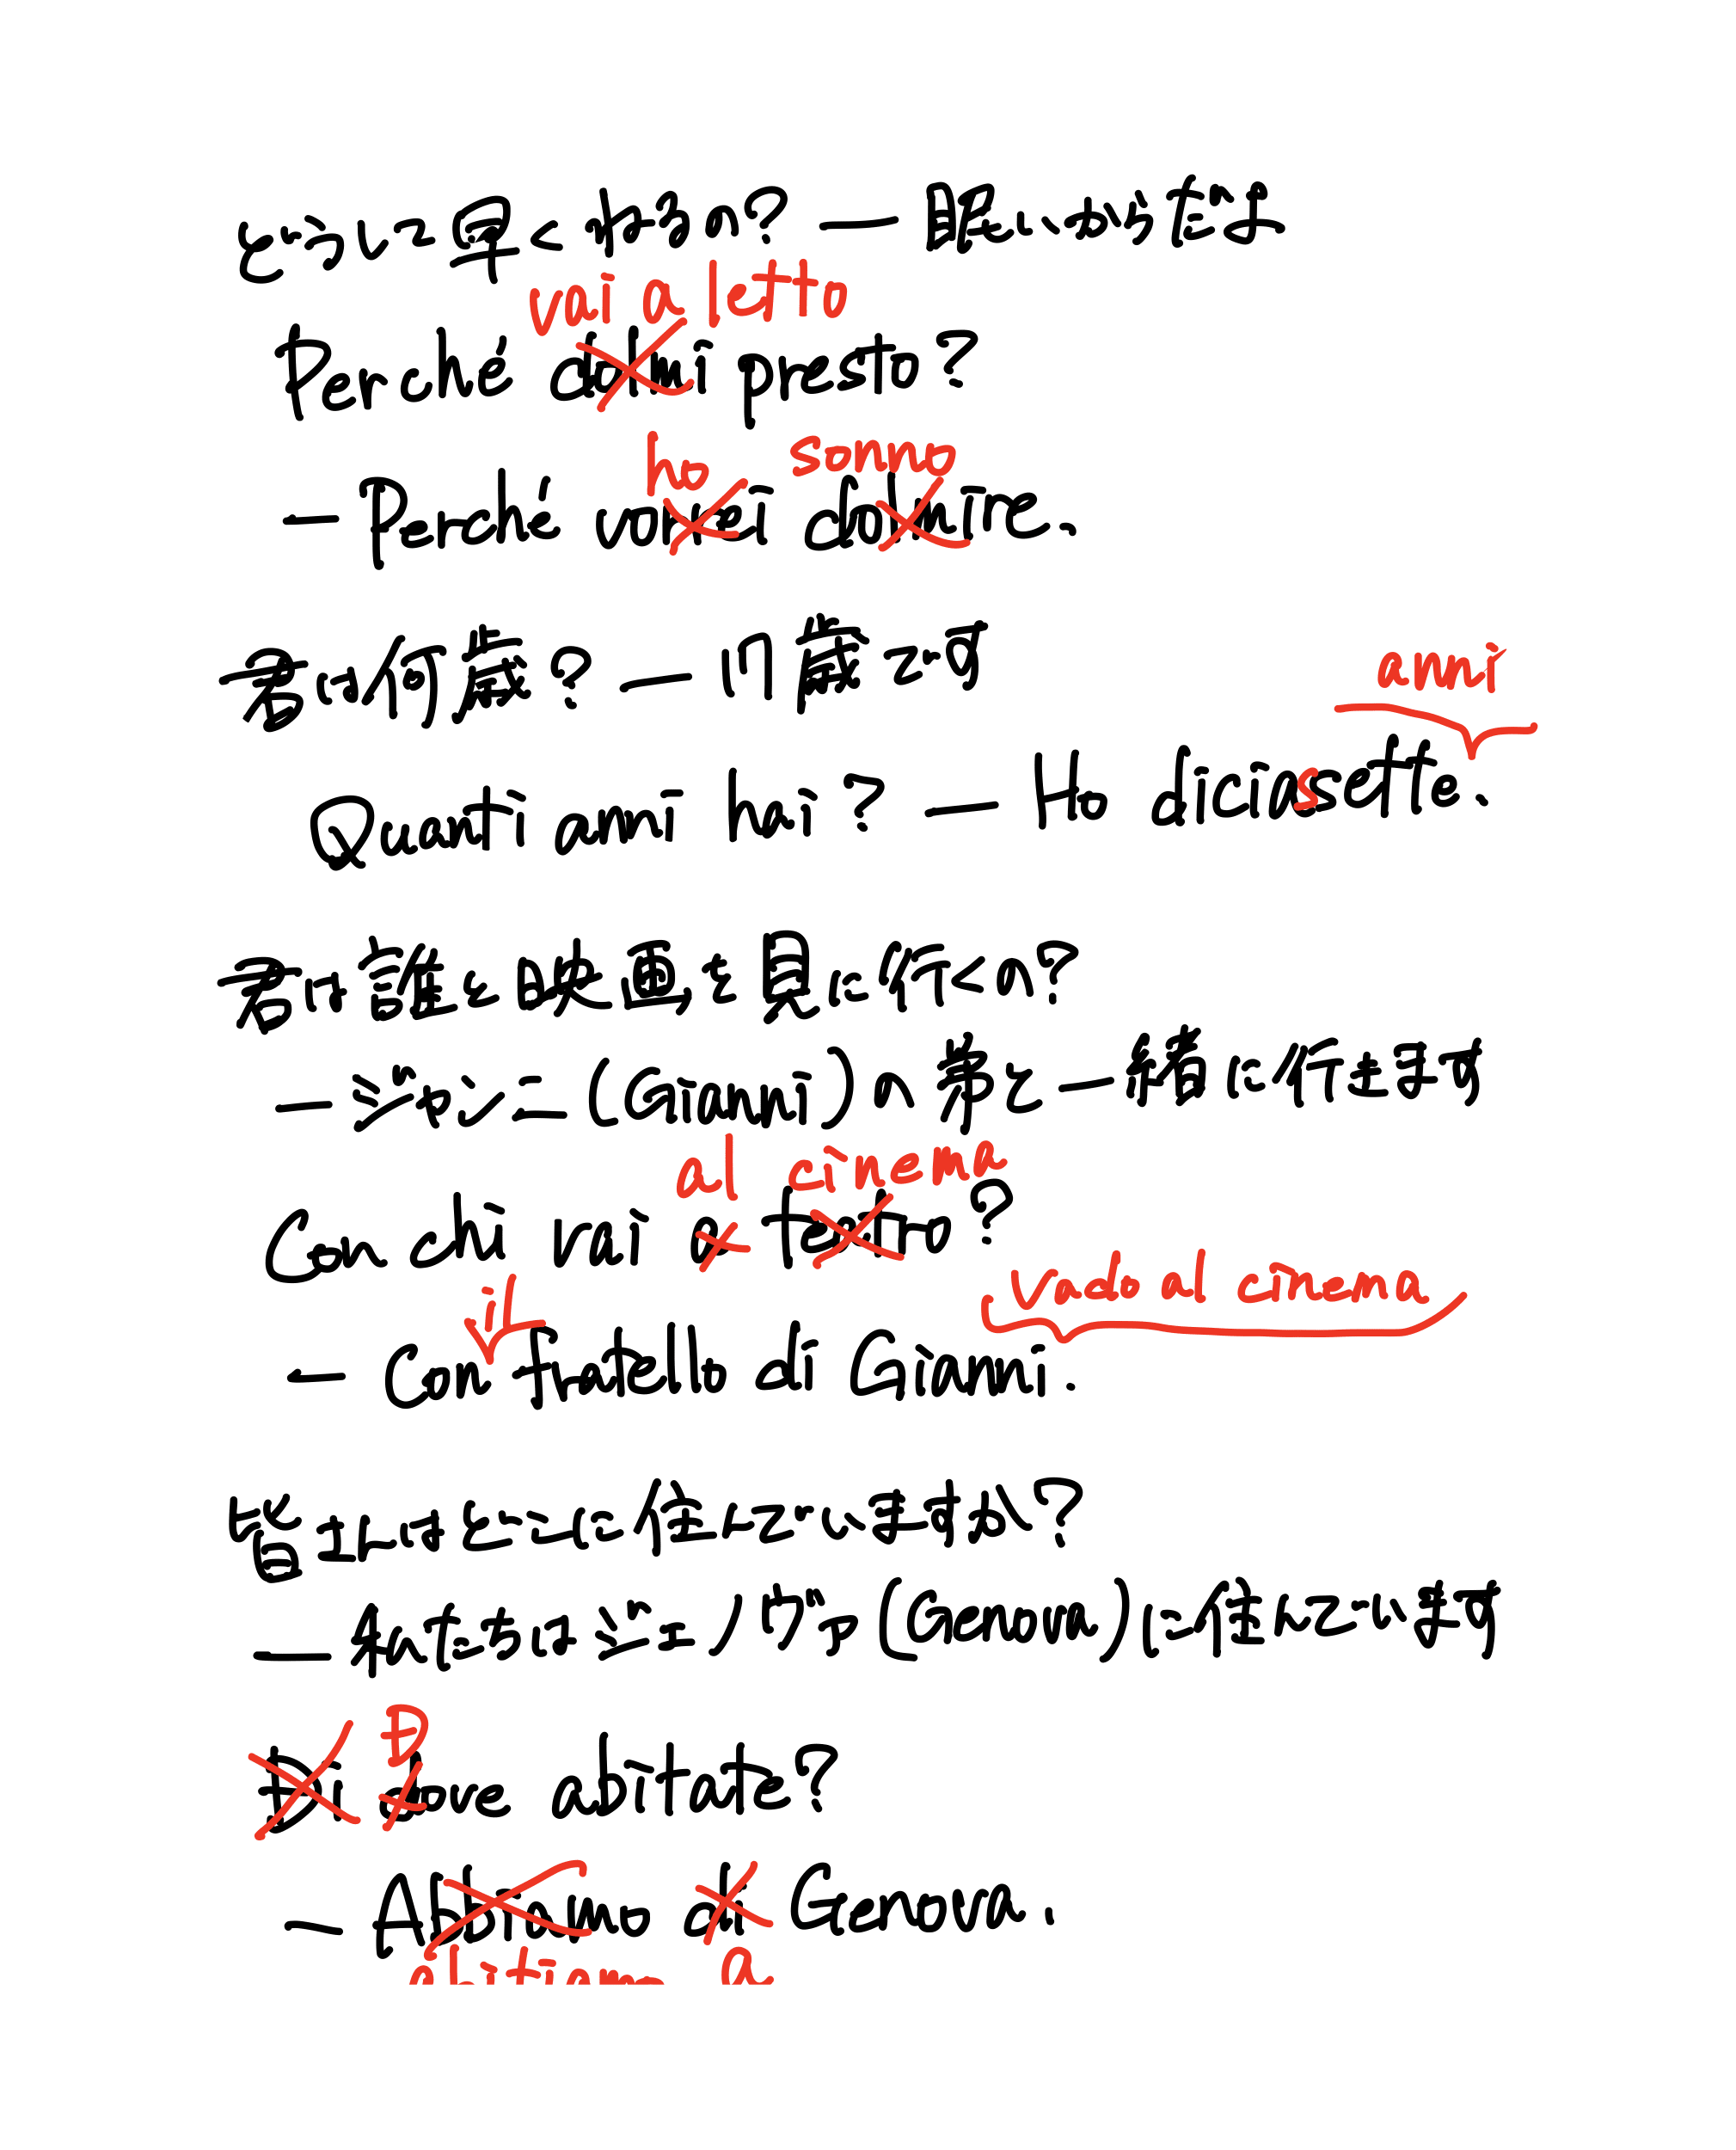 どうして早くねるの？ー眠いからだよ
vai a letto
Perché dormi presto?
ho sonno
— Perché vorrei dormire.
君は何歳？ー17歳です
anni
Quanti anni hai? — Ho diciassette.
君は誰と映画を見に行くの？
ージャンニ(Gianni)の弟と一緒に行きます
al cinema
Con chi vai a teatro?
il vado al cinema
— Con fratello di Gianni.
皆さんはどこに住んでいますか？
ー私たちはジェノヴァ(Genova)に住んでいます
D
Di dove abitate?
— Abiamo di Genova.
abitiamo a